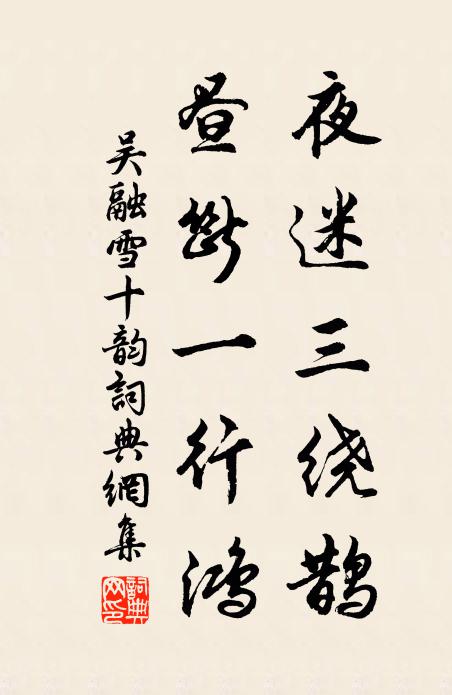 夜迷三绕鹊
昼断一行鸿
吴融雪十韵詞典網集
詞典网印